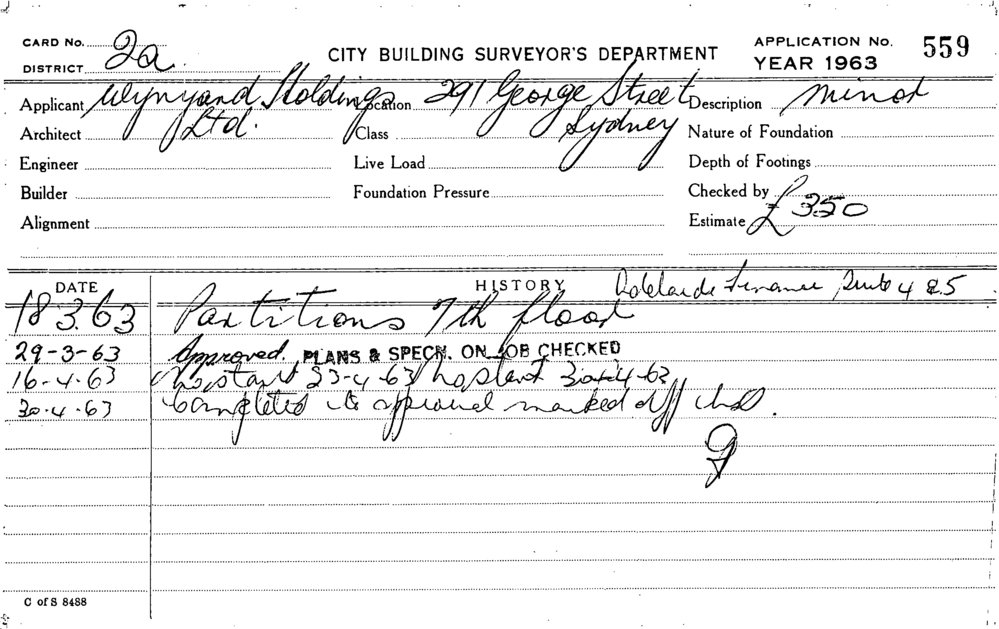 CARD No.
DISTRICT 2a
CITY BUILDING SURVEYOR'S DEPARTMENT
APPLICATION No. 559
YEAR 1963
Applicant Wynyard Holdings Ltd. Location 291 George Street Sydney Description Minor
Architect Class Nature of Foundation
Engineer Live Load Depth of Footings
Builder Foundation Pressure Checked by
Alignment Estimate £350
DATE HISTORY Adelaide Finance Suite 4 & 5
18 3.63 Partitions 7th floor
29-3-63 Approved. PLANS & SPECN. ON JOB CHECKED
16-4-63 No start 23-4-63 No start 30-4-63
30-4-63 Completed to approval marked off
C of S 8488